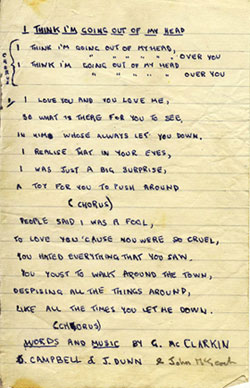 I THINK I'M GOING OUT OF MY HEAD
CHORUS
I THINK I'M GOING OUT OF MY HEAD,
" " " " " " OVER YOU
I THINK I'M GOING OUT OF MY HEAD
" " " " " OVER YOU
I LOVE YOU AND YOU LOVE ME,
SO WHAT IS THERE FOR YOU TO SEE,
IN HIM WHOSE ALWAYS LET YOU DOWN.
I REALISE THAT IN YOUR EYES,
I WAS JUST A BIG SURPRISE,
A TOY FOR YOU TO PUSH AROUND
(CHORUS)
PEOPLE SAID I WAS A FOOL,
TO LOVE YOU 'CAUSE YOU WERE SO CRUEL,
YOU HATED EVERYTHING THAT YOU SAW.
YOU YOUST TO WALK AROUND THE TOWN,
DESPISING ALL THE THINGS AROUND,
LIKE ALL THE TIMES YOU LET ME DOWN.
(CHORUS)
WORDS AND MUSIC BY G. McCLARKIN
CAMPBELL & J. DUNN & John